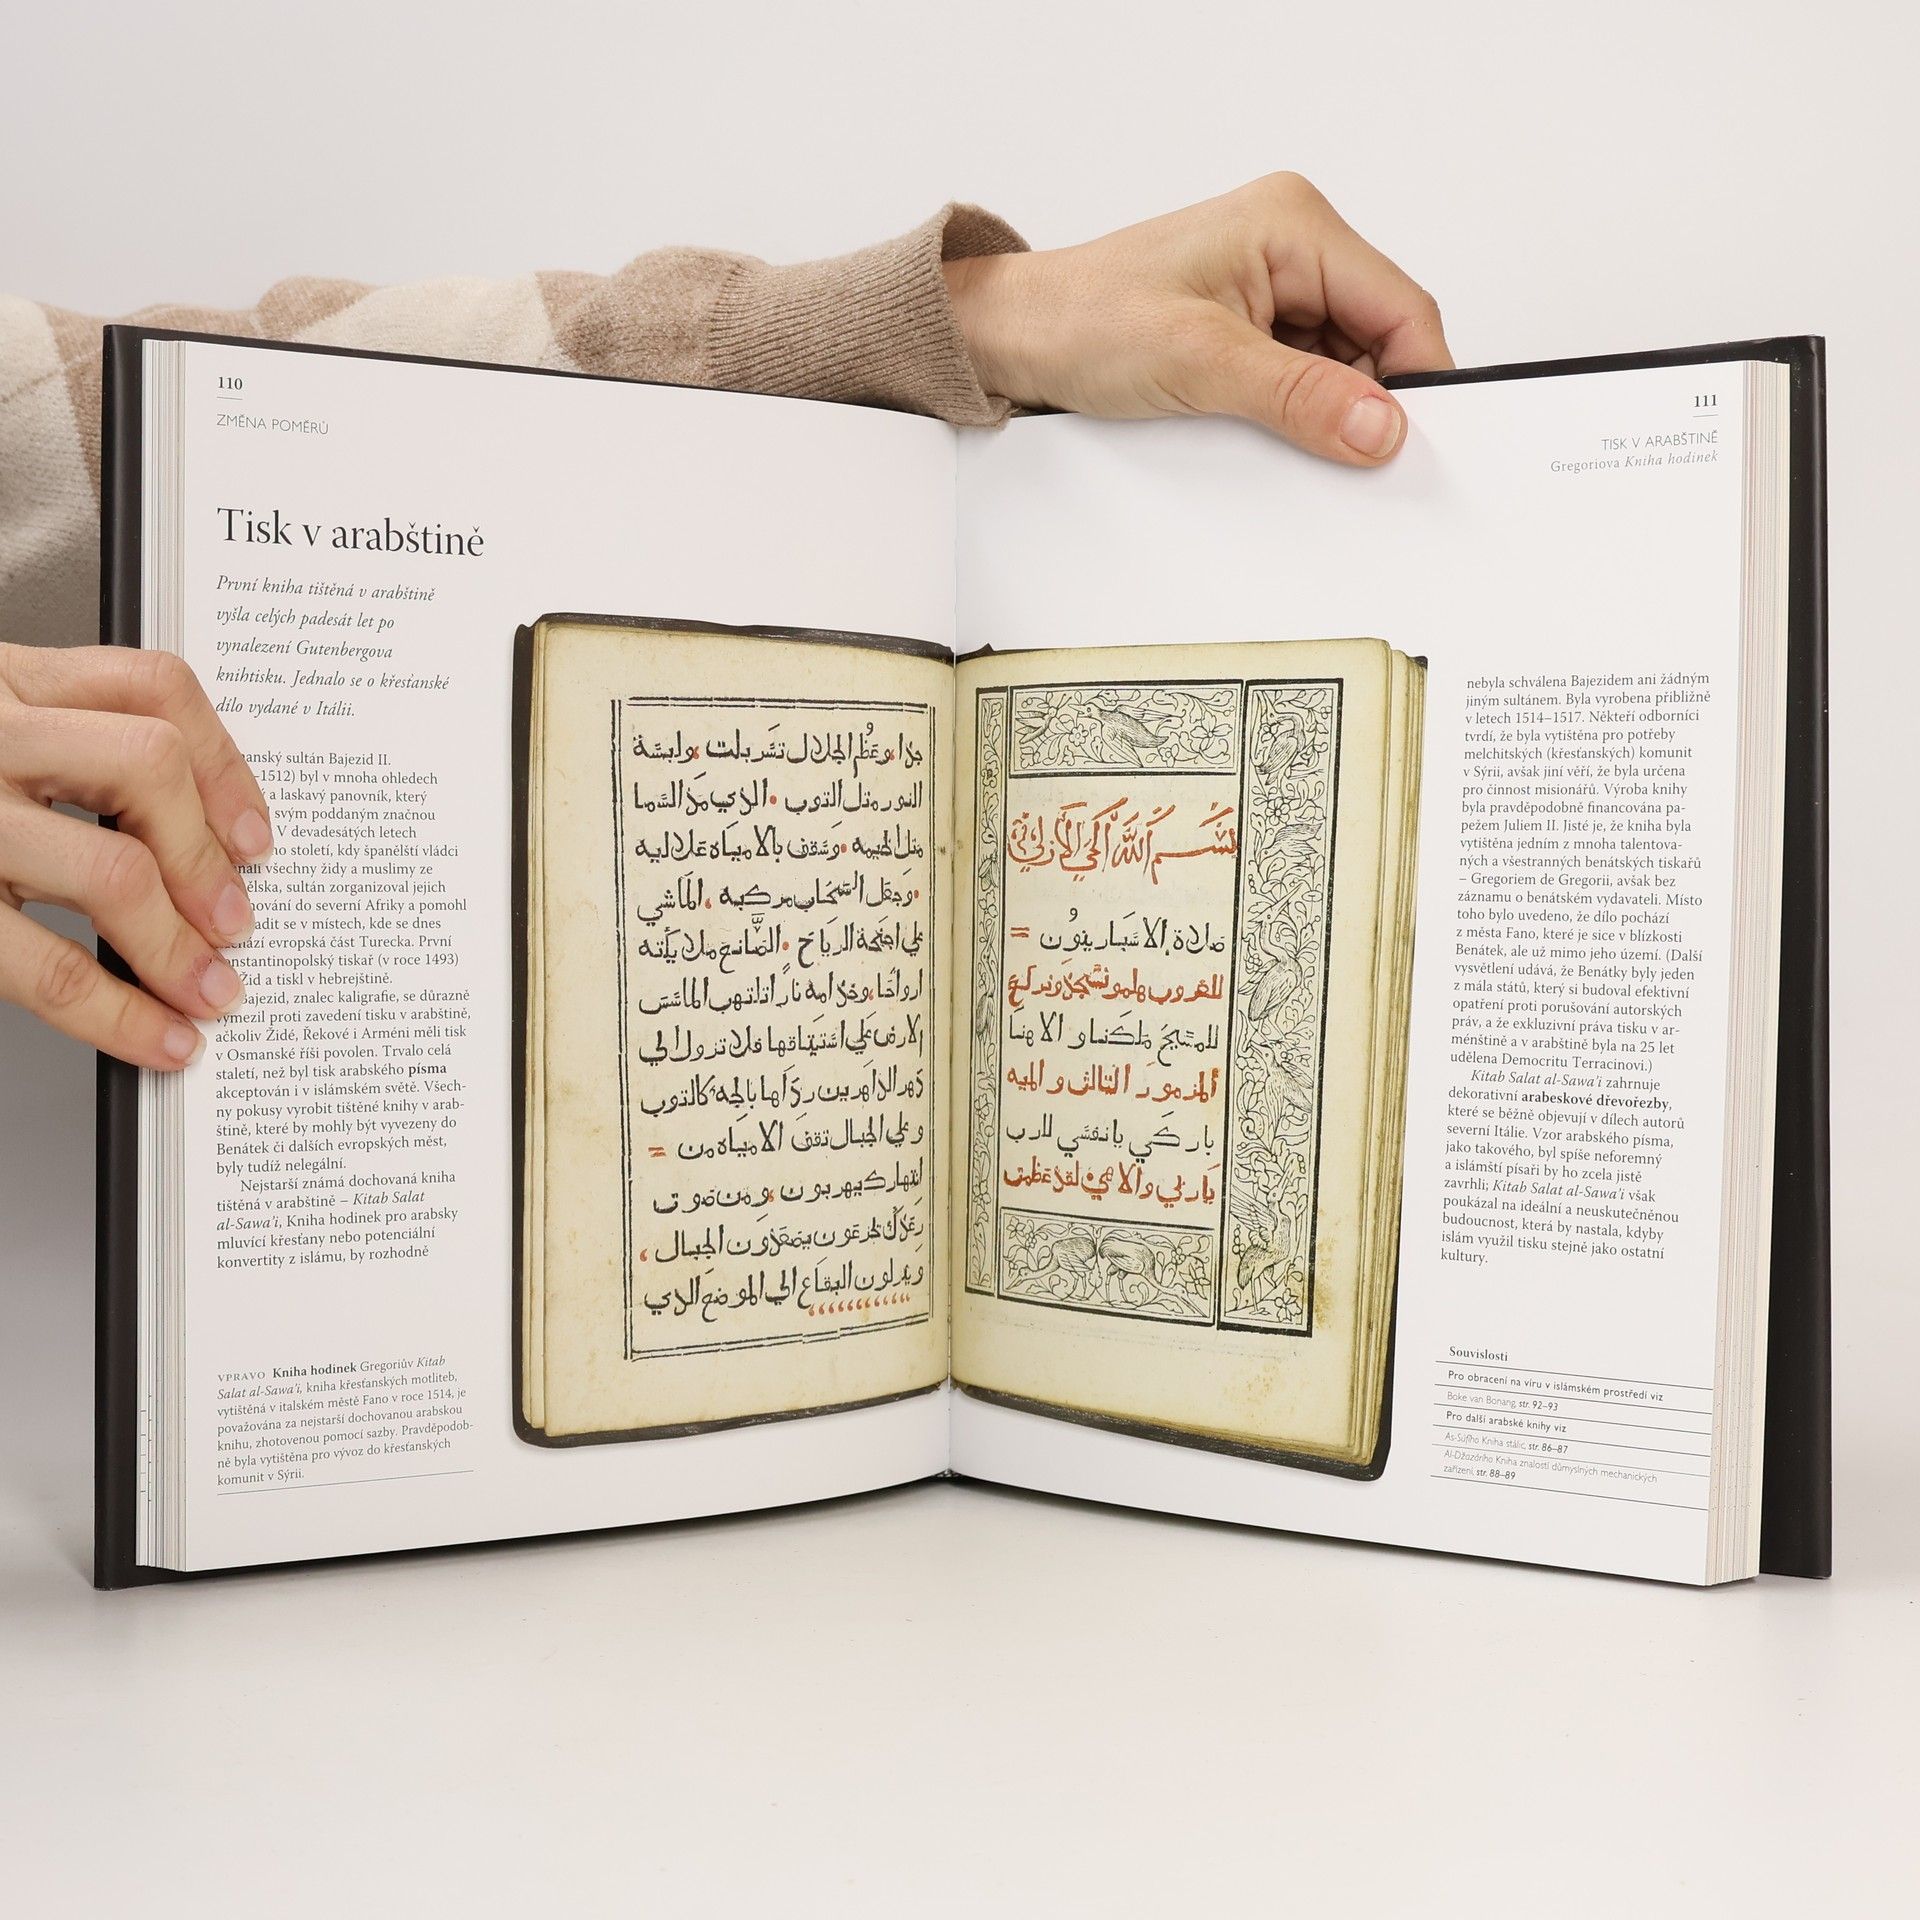 110
ZMĚNA POMĚRŮ
Tisk v arabštině
První kniha tištěná v arabštině
vyšla celých padesát let po
vynalezení Gutenbergova
knihtisku. Jednalo se o křesťanské
dílo vydané v Itálii.
sultán Bajezid II.
–1512) byl v mnoha ohledech
a laskavý panovník, který
svým poddaným značnou
V devadesátých letech
století, kdy španělští vládci
všechny židy a muslimy ze
sultán zorganizoval jejich
do severní Afriky a pomohl
se v místech, kde se dnes
evropská část Turecka. První
konstantinopolský tiskař (v roce 1493)
Žid a tiskl v hebrejštině.
Bajezid, znalec kaligrafie, se důrazně
vymezil proti zavedení tisku v arabštině,
ačkoliv Židé, Řekové i Arméni měli tisk
v Osmanské říši povolen. Trvalo celá
staletí, než byl tisk arabského písma
akceptován i v islámském světě. Všech-
ny pokusy vyrobit tištěné knihy v arab-
štině, které by mohly být vyvezeny do
Benátek či dalších evropských měst,
byly tudíž nelegální.
Nejstarší známá dochovaná kniha
tištěná v arabštině – Kitab Salat
al-Sawa’i, Kniha hodinek pro arabsky
mluvící křesťany nebo potenciální
konvertity z islámu, by rozhodně
VPRAVO Kniha hodinek Gregoriův Kitab
Salat al-Sawa’i, kniha křesťanských motliteb,
vytištěná v italském městě Fano v roce 1514, je
považována za nejstarší dochovanou arabskou
knihu, zhotovenou pomocí sazby. Pravděpodob-
ně byla vytištěna pro vývoz do křesťanských
komunit v Sýrii.
جدا، وعظم الجلال تسربلت، ولبسة
النور متل التوب • الذي مد السما
متل الخيمه • وسقف بالامياه علاليه
• وجعل السحاب مركبه، الماشي
علي اجنحة الرياح • الصانع ملايكته
ارواحا، وخدامه نارا تلتهب الماسس
الارض علي استيتاقها فلا تزول الي
دهر الداهرين رداها بالجه كالتوب
وعلي الجبال تقف الامياه من =
انتهارك يهربون، ومن صوت
رعدك يجزعون يصعدون الجبال،
وينزلون البقاع الي الموضع الذي
بسم الله الحي الازلي
صلاة الاسبارينون =
للغروب هلمو نسجد ونركع
للمسيح ملكنا و الاهنا
المزمور التالت و الميه
باركي يا نفسي للرب
يا ربي والاهي لقد عظمت
111
TISK V ARABŠTINĚ
Gregoriova Kniha hodinek
nebyla schválena Bajezidem ani žádným
jiným sultánem. Byla vyrobena přibližně
v letech 1514–1517. Někteří odborníci
tvrdí, že byla vytištěna pro potřeby
melchitských (křesťanských) komunit
v Sýrii, avšak jiní věří, že byla určena
pro činnost misionářů. Výroba knihy
byla pravděpodobně financována pa-
pežem Juliem II. Jisté je, že kniha byla
vytištěna jedním z mnoha talentova-
ných a všestranných benátských tiskařů
– Gregoriem de Gregorii, avšak bez
záznamu o benátském vydavateli. Místo
toho bylo uvedeno, že dílo pochází
z města Fano, které je sice v blízkosti
Benátek, ale už mimo jeho území. (Další
vysvětlení udává, že Benátky byly jeden
z mála států, který si budoval efektivní
opatření proti porušování autorských
práv, a že exkluzivní práva tisku v ar-
ménštině a v arabštině byla na 25 let
udělena Democritu Terracinovi.)
Kitab Salat al-Sawa’i zahrnuje
dekorativní arabeskové dřevořezby,
které se běžně objevují v dílech autorů
severní Itálie. Vzor arabského písma,
jako takového, byl spíše neforemný
a islámští písaři by ho zcela jistě
zavrhli; Kitab Salat al-Sawa’i však
poukázal na ideální a neuskutečněnou
budoucnost, která by nastala, kdyby
islám využil tisku stejně jako ostatní
kultury.
Souvislosti
Pro obracení na víru v islámském prostředí viz
Boke van Bonang, str. 92–93
Pro další arabské knihy viz
As-Súfího Kniha stálic, str. 86–87
Al-Džazárího Kniha znalostí důmyslných mechanických
zařízení, str. 88–89